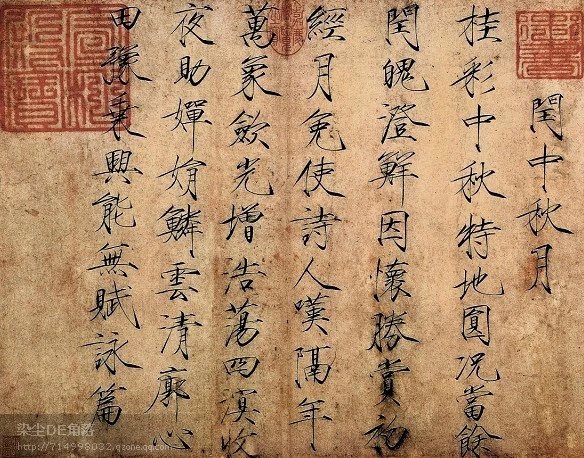 閏中秋月
桂彩中秋特地圓況當餘
閏魄澄鮮因懷勝賞初
經月免使詩人嘆隔年
萬象歛光增浩蕩四溟收
夜助嬋娟鱗雲清廓心
田豫乗興能無賦詠篇
染尘DE角落
http://714998032.qzone.qq.com